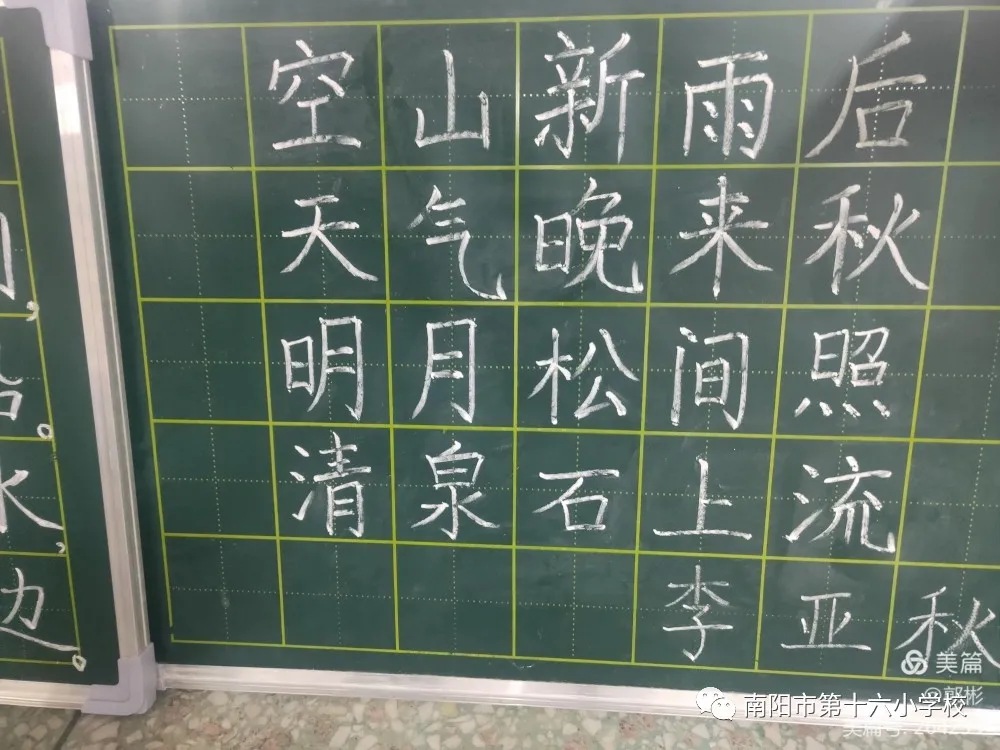 空山新雨后
天气晚来秋
明月松间照
清泉石上流
李亚秋
水，
边。
美篇
@郭彬
南阳市第十六小学校